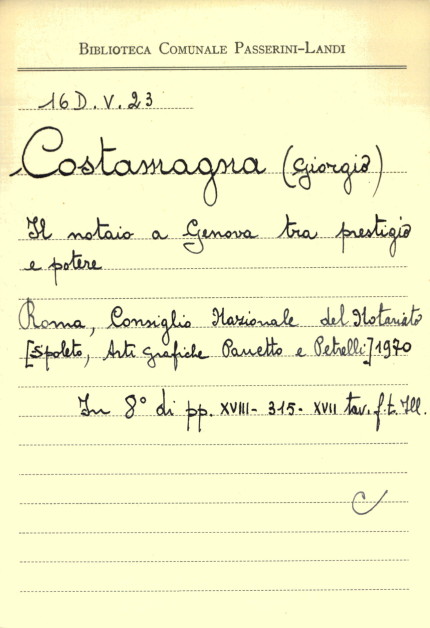 BIBLIOTECA COMUNALE PASSERINI-LANDI
16 D. V. 23
Costamagna (Giorgio)
Il notaio a Genova tra prestigio
e potere
Roma, Consiglio Nazionale del Notariato
[Spoleto, Arti Grafiche Panetto e Petrelli] 1970
In 8° di pp. XVIII- 315- XVII tav. f. t. Ill.
C